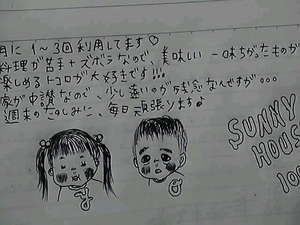 月に1〜3回利用してます♡
料理が苦手+ズボラなので、美味しい一味ちがったものが
楽しめるトコロが大好きです!!!
家が中讃なので、少し遠いのが残念なんですが。。。
週末のたのしみに、毎日頑張ります♪
SUNNY
HOUS
100